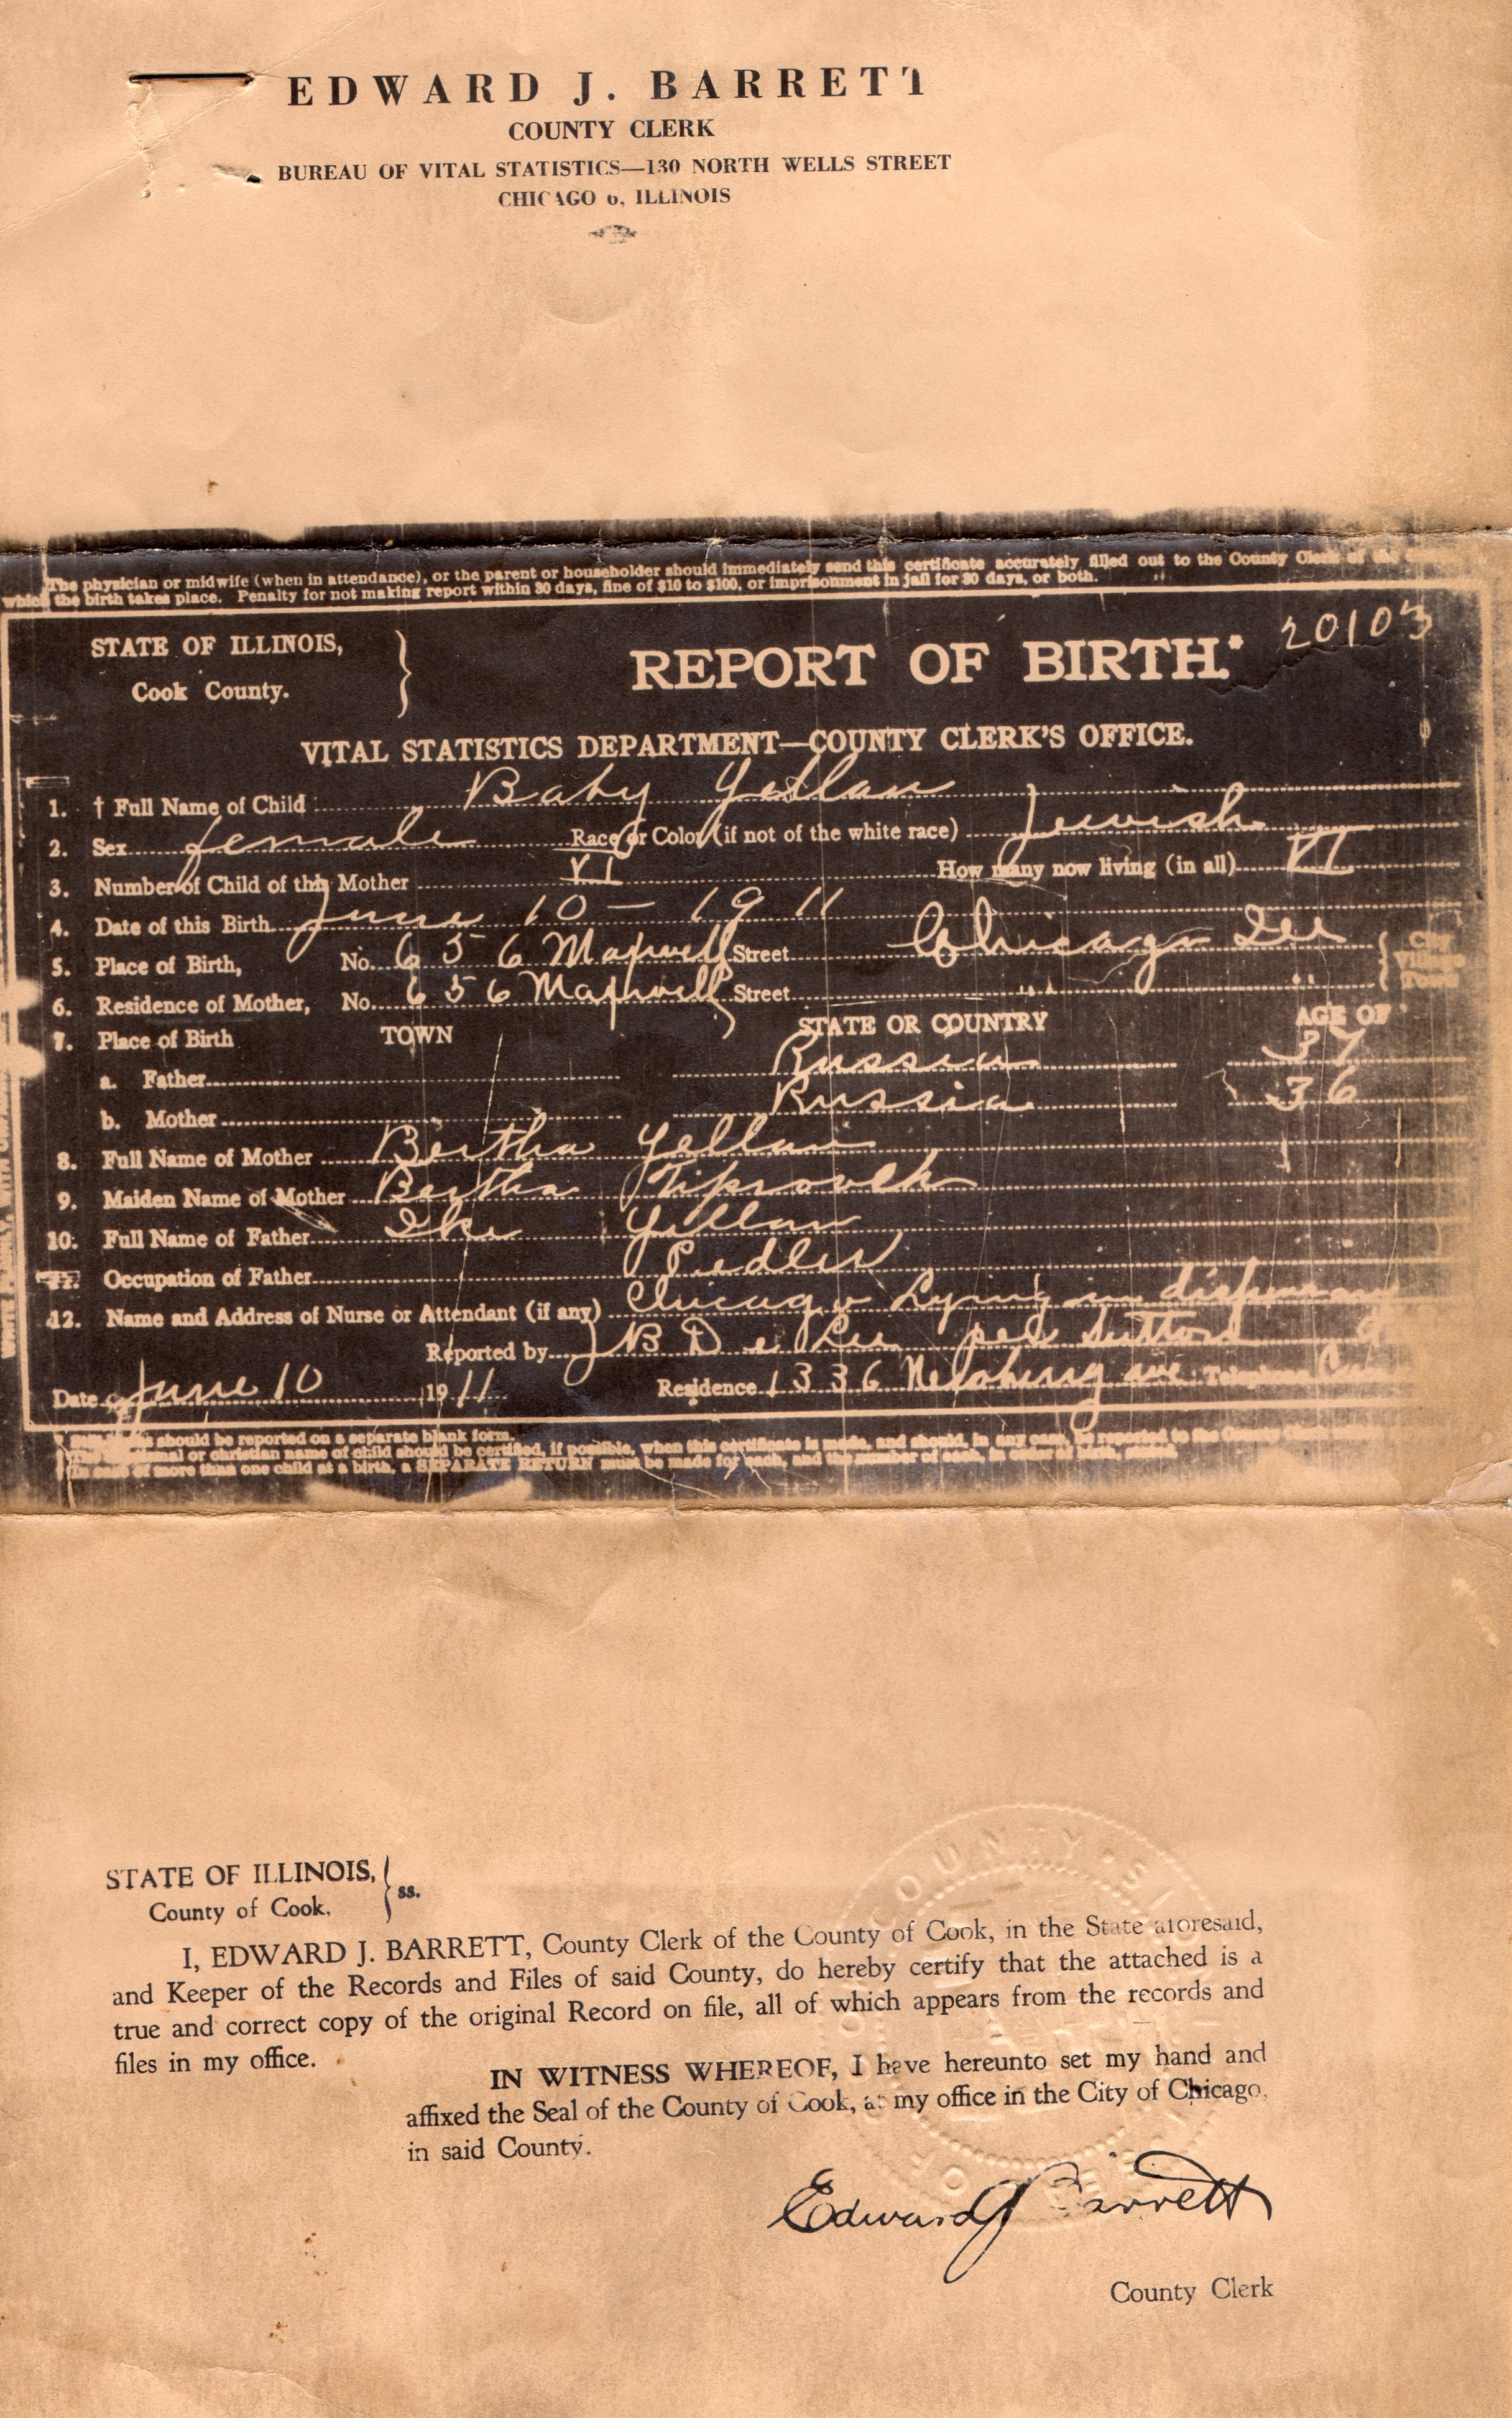 EDWARD J. BARRETT
COUNTY CLERK
BUREAU OF VITAL STATISTICS—130 NORTH WELLS STREET
CHICAGO 6, ILLINOIS
The physician or midwife (when in attendance), or the parent or householder should immediately send this certificate accurately filled out to the County Clerk of the
which the birth takes place. Penalty for not making report within 30 days, fine of $10 to $100, or imprisonment in jail for 30 days, or both.
20103
STATE OF ILLINOIS,
Cook County.
REPORT OF BIRTH.*
VITAL STATISTICS DEPARTMENT—COUNTY CLERK'S OFFICE.
1. † Full Name of Child Baby Yellan
2. Sex female Race or Color (if not of the white race) Jewish
3. Number of Child of this Mother VI How many now living (in all) VI
4. Date of this Birth June 10 - 1911
5. Place of Birth, No. 656 Maxwell Street Chicago Ill City Village Town
6. Residence of Mother, No. 656 Maxwell Street " "
7. Place of Birth TOWN STATE OR COUNTRY AGE OF
a. Father Russia 37
b. Mother Russia 36
8. Full Name of Mother Bertha Yellan
9. Maiden Name of Mother Bertha
10. Full Name of Father Ike Yellan
11. Occupation of Father Pedler
12. Name and Address of Nurse or Attendant (if any) Chicago Lying in
Reported by J B De Lee per Sutton
Date June 10 1911 Residence 1336 Newberry ave Telephone
should be reported on a separate blank form.
or christian name of child should be certified, if possible, when this certificate is made, and should, in any case, be reported to the County
In case of more than one child at a birth, a SEPARATE RETURN must be made for each, and the number of each, in order of birth, stated.
STATE OF ILLINOIS,
County of Cook. ss.
I, EDWARD J. BARRETT, County Clerk of the County of Cook, in the State aforesaid,
and Keeper of the Records and Files of said County, do hereby certify that the attached is a
true and correct copy of the original Record on file, all of which appears from the records and
files in my office.
IN WITNESS WHEREOF, I have hereunto set my hand and
affixed the Seal of the County of Cook, at my office in the City of Chicago,
in said County.
Edward J Barrett
County Clerk